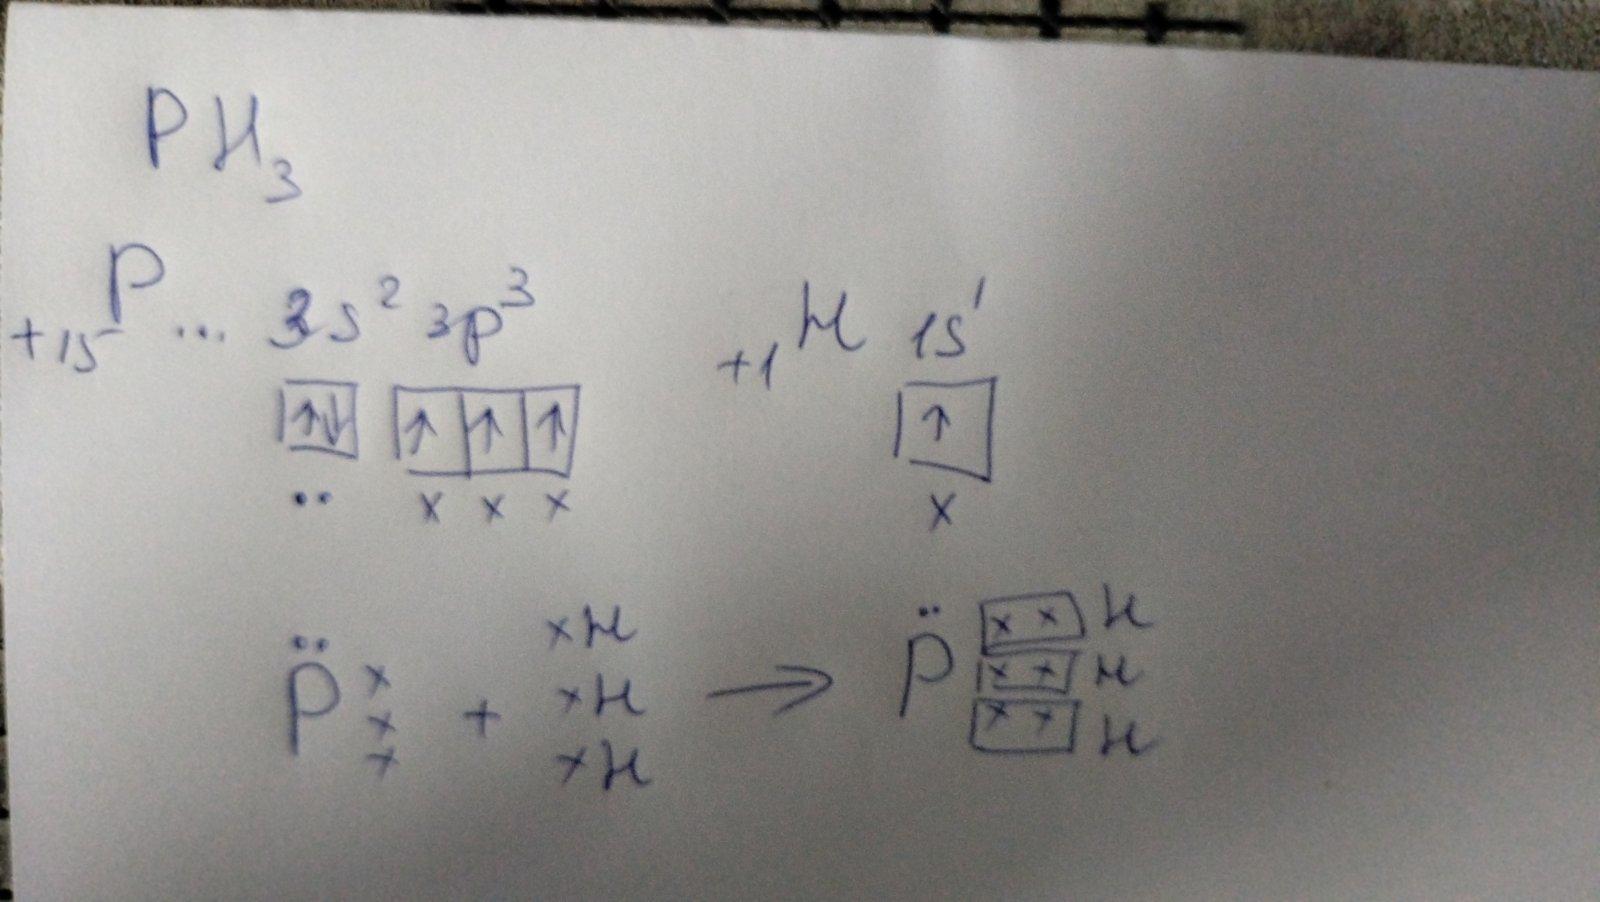 PH₃
₊₁₅P ... 3s² 3p³ ₊₁H 1s¹
↑↓ ↑ ↑ ↑ ↑
·· x x x x
·· xH ·· x x H
P x x x + xH → P x x H
xH x x H